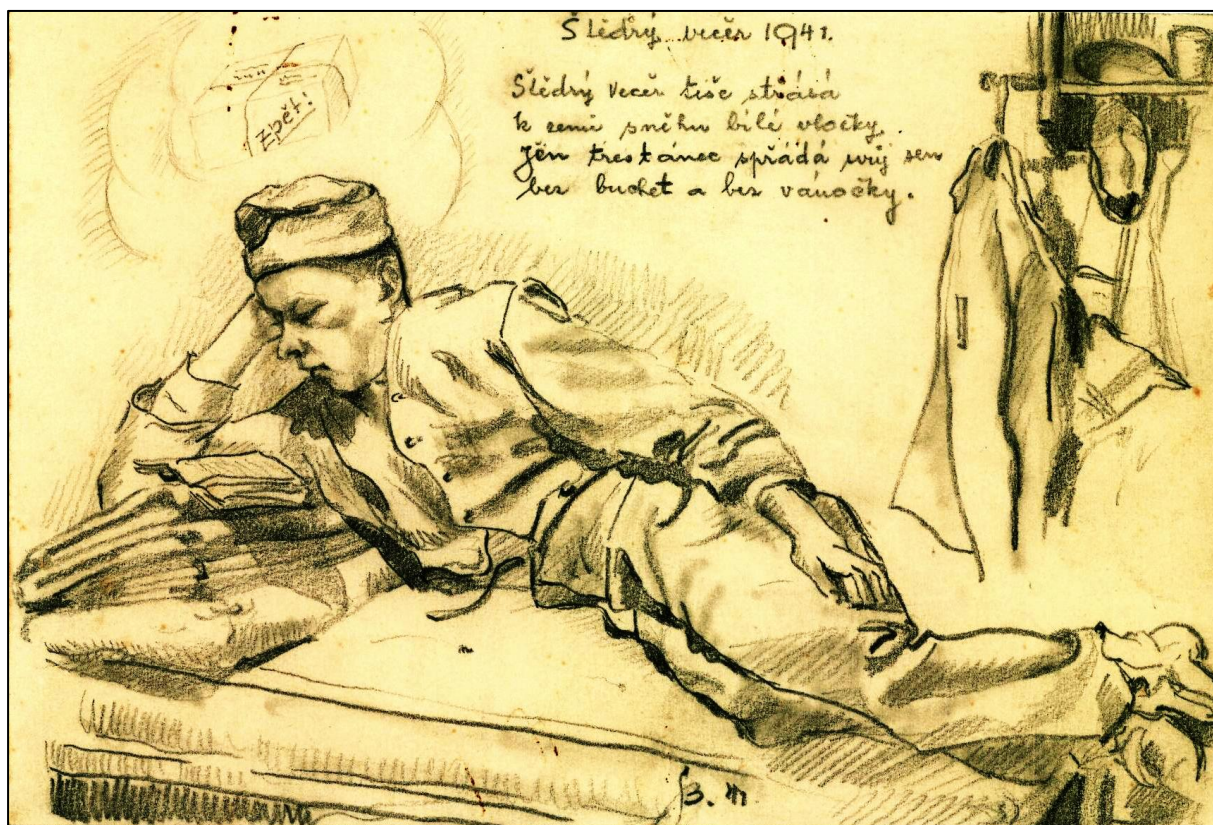 Zpět!
Štědrý večer 1941.
Štědrý večer tiše střásá
k zemi sněhu bílé vločky.
Jen trestanec spřádá svůj sen
bez buchet a bez vánočky.
B. M.